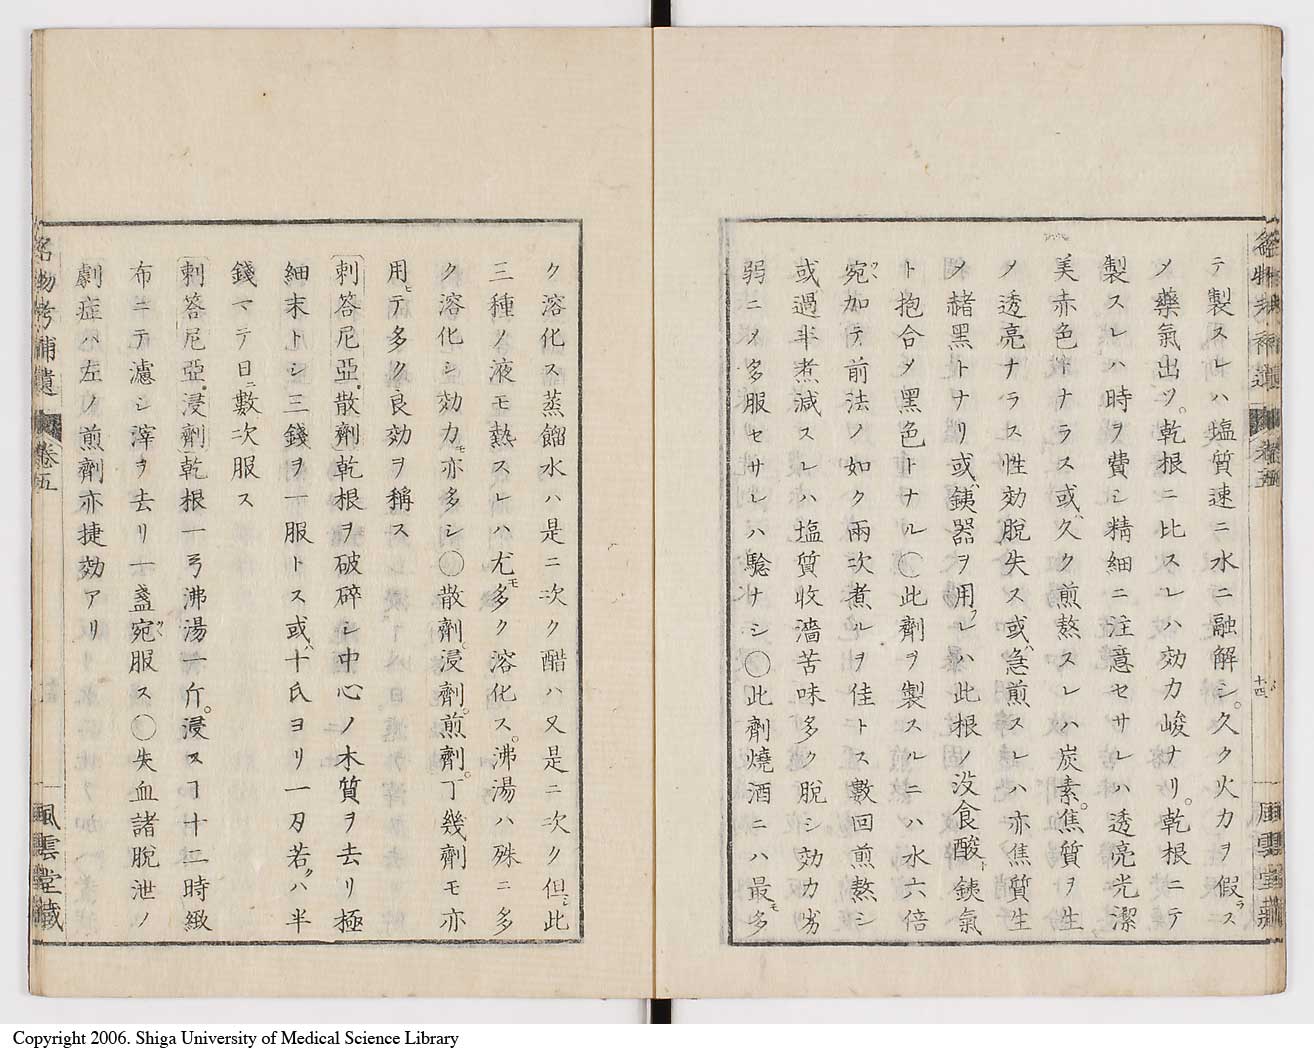 テ製スレハ塩質速ニ水ニ融解シ。久ク火力ヲ假ラス
メ藥氣出ツ。乾根ニ比スレハ効力峻ナリ。乾根ニテ
製スレハ時ヲ費シ精細ニ注意セサレハ透亮光潔
美赤色トナラス或ハ久ク煎熬スレハ炭素。焦質ヲ生
メ透亮ナラス性効脫失ス或ハ急煎スレハ亦焦質生
メ赭黑トナリ或ハ銕器ヲ用フレハ此根ノ沒食酸ト銕氣
ト抱合メ黑色トナル〇此劑ヲ製スルニハ水六倍
宛ツヽ加テ前法ノ如ク兩次煮ルヲ佳トス數回煎熬シ
或過半煮減スレハ塩質收濇苦味多ク脫シ効力劣
弱ニメ多服セサレハ驗ナシ〇此劑燒酒ニハ最モ多
十四
風雲堂藏
ク溶化ス蒸餾水ハ是ニ次ク醋ハ又是ニ次ク但シ此
三種ノ液モ熱スレハ尤モ多ク溶化ス。沸湯ハ殊ニ多
ク溶化シ効力モ亦多シ〇散劑。浸劑。煎劑。丁幾劑モ亦
用ヒテ多ク良効ヲ稱ス
刺答尼亞。散劑 乾根ヲ破碎シ中心ノ木質ヲ去リ極
細末トシ三錢ヲ一服トス或ハ十氏ヨリ一刄若クハ半
錢マテ日ニ數次服ス
刺答尼亞。浸劑 乾根一弓沸湯一斤。浸スヿ十二時緻
布ニテ濾シ滓ヲ去リ一盞宛ツヽ服ス〇失血諸脫泄ノ
劇症ハ左ノ煎劑亦捷効アリ
名物考補遺 卷五
風雲堂藏
Copyright 2006. Shiga University of Medical Science Library